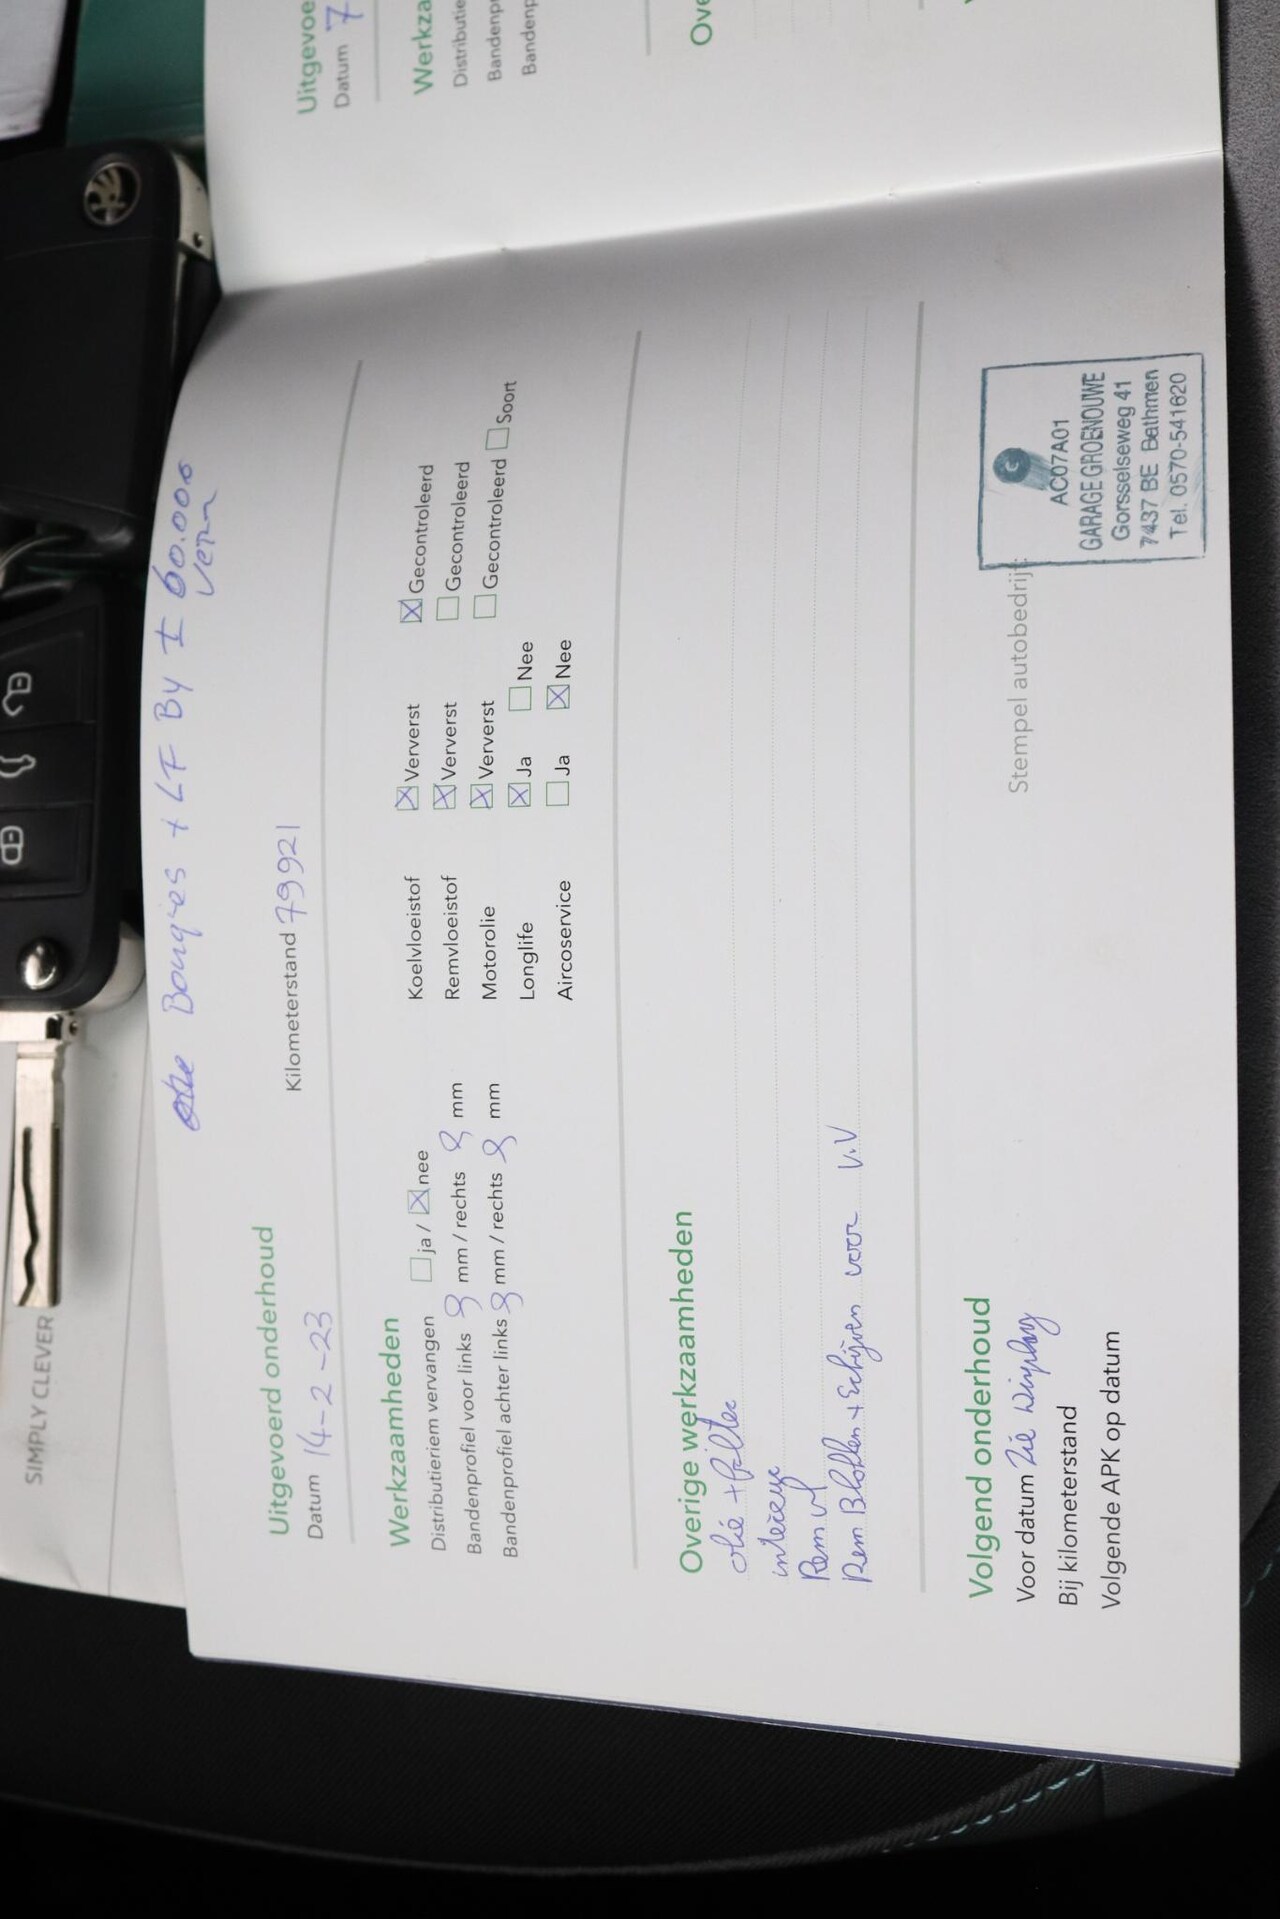 SIMPLY CLEVER
Bougies + LF By ± 60.000
Vern
Uitgevoerd onderhoud
Datum 14-2-23
Kilometerstand 79921
Werkzaamheden
Distributieriem vervangen ja / nee
Bandenprofiel voor links 8 mm / rechts 8 mm
Bandenprofiel achter links 8 mm / rechts 8 mm
Koelvloeistof Ververst Gecontroleerd
Remvloeistof Ververst Gecontroleerd
Motorolie Ververst Gecontroleerd Soort
Longlife Ja Nee
Aircoservice Ja Nee
Overige werkzaamheden
olie + filter
Rem vl
Rem Blokken + Schijven voor V.V
Volgend onderhoud
Voor datum Zie Display
Bij kilometerstand
Volgende APK op datum
Stempel autobedrijf
AC07A01
GARAGE GROENOUWE
Gorsselseweg 41
7437 BE Bathmen
Tel. 0570-541620
Uitgevoe
Datum 7
Werkza
Distributie
Bandenp
Bandenp
Ove